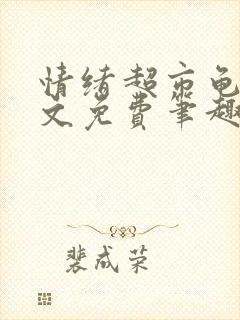 情绪超市龟
文免费笔趣
裴成荣